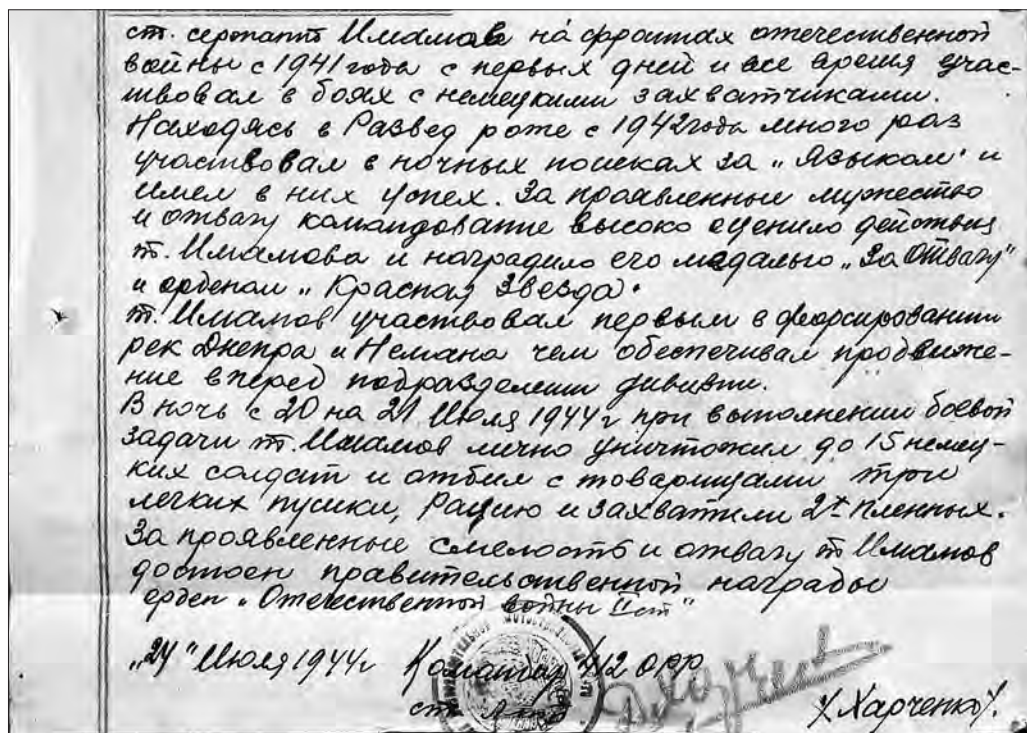 ст. сержант Имамов на фронтах отечественной
войны с 1941 года с первых дней и все время учас-
твовал в боях с немецкими захватчиками.
Находясь в Развед роте с 1942 года много раз
участвовал в ночных поисках за „Языком" и
имел в них успех. За проявленные мужество
и отвагу командование высоко оценило действия
т. Имамова и наградило его медалью „За Отвагу"
и орденом „Красная Звезда".
т. Имамов участвовал первым в форсировании
рек Днепра и Немана чем обеспечивал продвиже-
ние вперед подразделений дивизии.
В ночь с 20 на 21 Июля 1944 г при выполнении боевой
задачи т. Имамов лично уничтожил до 15 немец-
ких солдат и отбил с товарищами три
легких пушки, Рацию и захватили 2х пленных.
За проявленные смелость и отвагу т Имамов
достоен правительственной награды
орден „Отечественной войны II ст"
„24" Июля 1944г Командир 412 ОРР
ст.
/Харченко/.